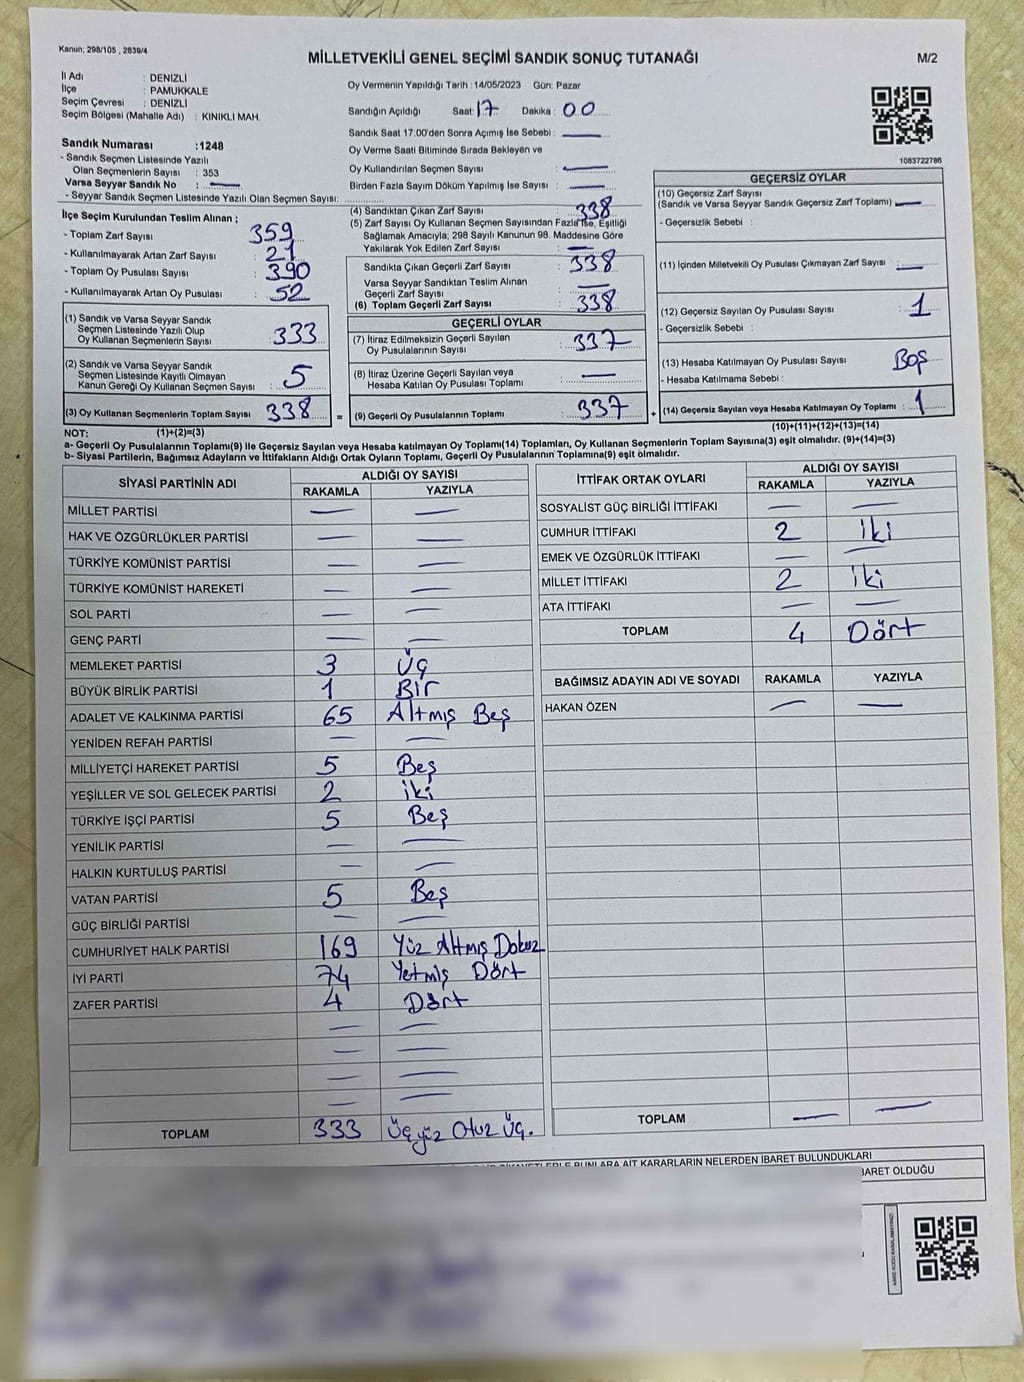 Kanun; 298/105 , 2839/4
MİLLETVEKİLİ GENEL SEÇİMİ SANDIK SONUÇ TUTANAĞI
M/2
İl Adı : DENİZLİ
İlçe : PAMUKKALE
Seçim Çevresi : DENİZLİ
Seçim Bölgesi (Mahalle Adı) : KINIKLI MAH.
Oy Vermenin Yapıldığı Tarih : 14/05/2023 Gün: Pazar
Sandığın Açıldığı Saat: 17 Dakika : 00
Sandık Saat 17.00'den Sonra Açımış İse Sebebi : —
Oy Verme Saati Bitiminde Sırada Bekleyen ve
Oy Kullandırılan Seçmen Sayısı : —
Birden Fazla Sayım Döküm Yapılmış İse Sayısı : —
1083722786
Sandık Numarası :1248
- Sandık Seçmen Listesinde Yazılı
Olan Seçmenlerin Sayısı : 353
Varsa Seyyar Sandık No : —
- Seyyar Sandık Seçmen Listesinde Yazılı Olan Seçmen Sayısı:
İlçe Seçim Kurulundan Teslim Alınan ;
- Toplam Zarf Sayısı 359
- Kullanılmayarak Artan Zarf Sayısı : 21
- Toplam Oy Pusulası Sayısı : 390
- Kullanılmayarak Artan Oy Pusulası : 52
(1) Sandık ve Varsa Seyyar Sandık
Seçmen Listesinde Yazılı Olup
Oy Kullanan Seçmenlerin Sayısı : 333
(2) Sandık ve Varsa Seyyar Sandık
Seçmen Listesinde Kayıtlı Olmayan
Kanun Gereği Oy Kullanan Seçmen Sayısı : 5
(3) Oy Kullanan Seçmenlerin Toplam Sayısı 338
(4) Sandıktan Çıkan Zarf Sayısı : 338
(5) Zarf Sayısı Oy Kullanan Seçmen Sayısından Fazla İse, Eşitliği
Sağlamak Amacıyla; 298 Sayılı Kanunun 98. Maddesine Göre
Yakılarak Yok Edilen Zarf Sayısı : —
Sandıkta Çıkan Geçerli Zarf Sayısı : 338
Varsa Seyyar Sandıktan Teslim Alınan
Geçerli Zarf Sayısı : —
(6) Toplam Geçerli Zarf Sayısı : 338
GEÇERLİ OYLAR
(7) İtiraz Edilmeksizin Geçerli Sayılan
Oy Pusulalarının Sayısı : 337
(8) İtiraz Üzerine Geçerli Sayılan veya
Hesaba Katılan Oy Pusulası Toplamı : —
= (9) Geçerli Oy Pusulalarının Toplamı : 337
GEÇERSİZ OYLAR
(10) Geçersiz Zarf Sayısı
(Sandık ve Varsa Seyyar Sandık Geçersiz Zarf Toplamı) —
- Geçersizlik Sebebi :
(11) İçinden Milletvekili Oy Pusulası Çıkmayan Zarf Sayısı : —
(12) Geçersiz Sayılan Oy Pusulası Sayısı : 1
- Geçersizlik Sebebi :
(13) Hesaba Katılmayan Oy Pusulası Sayısı : Boş
- Hesaba Katılmama Sebebi :
+ (14) Geçersiz Sayılan veya Hesaba Katılmayan Oy Toplamı : 1
NOT: (1)+(2)=(3)
(10)+(11)+(12)+(13)=(14)
a- Geçerli Oy Pusulalarının Toplamı(9) ile Geçersiz Sayılan veya Hesaba katılmayan Oy Toplamı(14) Toplamları, Oy Kullanan Seçmenlerin Toplam Sayısına(3) eşit olmalıdır. (9)+(14)=(3)
b- Siyasi Partilerin, Bağımsız Adayların ve İttifakların Aldığı Ortak Oyların Toplamı, Geçerli Oy Pusulalarının Toplamına(9) eşit olmalıdır.
SİYASİ PARTİNİN ADI ALDIĞI OY SAYISI
RAKAMLA YAZIYLA
MİLLET PARTİSİ — —
HAK VE ÖZGÜRLÜKLER PARTİSİ — —
TÜRKİYE KOMÜNİST PARTİSİ — —
TÜRKİYE KOMÜNİST HAREKETİ — —
SOL PARTİ — —
GENÇ PARTİ — —
MEMLEKET PARTİSİ 3 Üç
BÜYÜK BİRLİK PARTİSİ 1 Bir
ADALET VE KALKINMA PARTİSİ 65 Altmış Beş
YENİDEN REFAH PARTİSİ — —
MİLLİYETÇİ HAREKET PARTİSİ 5 Beş
YEŞİLLER VE SOL GELECEK PARTİSİ 2 iki
TÜRKİYE İŞÇİ PARTİSİ 5 Beş
YENİLİK PARTİSİ — —
HALKIN KURTULUŞ PARTİSİ — —
VATAN PARTİSİ 5 Beş
GÜÇ BİRLİĞİ PARTİSİ — —
CUMHURİYET HALK PARTİSİ 169 Yüz Altmış Dokuz
İYİ PARTİ 74 Yetmiş Dört
ZAFER PARTİSİ 4 Dört
— —
— —
— —
— —
TOPLAM 333 Üçyüz Otuz Üç.
İTTİFAK ORTAK OYLARI ALDIĞI OY SAYISI
RAKAMLA YAZIYLA
SOSYALİST GÜÇ BİRLİĞİ İTTİFAKI — —
CUMHUR İTTİFAKI 2 İki
EMEK VE ÖZGÜRLÜK İTTİFAKI — —
MİLLET İTTİFAKI 2 iki
ATA İTTİFAKI — —
TOPLAM 4 Dört
BAĞIMSIZ ADAYIN ADI VE SOYADI RAKAMLA YAZIYLA
HAKAN ÖZEN — —
TOPLAM — —
BUNLARA AİT KARARLARIN NELERDEN İBARET BULUNDUKLARI
İBARET OLDUĞU